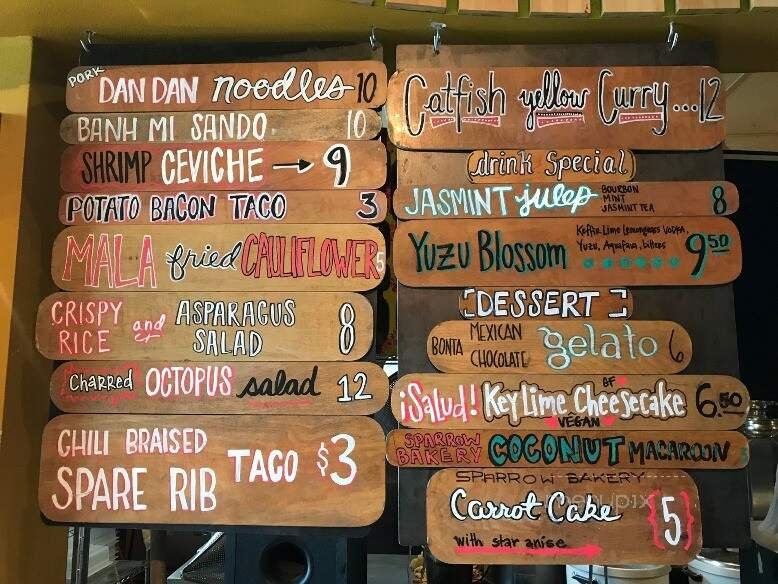 PORK DAN DAN noodles 10
BANH MI SANDO 10
SHRIMP CEVICHE → 9
POTATO BACON TACO 3
MALA fried CAULIFLOWER 5
CRISPY RICE and ASPARAGUS SALAD 8
Charred OCTOPUS salad 12
CHILI BRAISED
SPARE RIB TACO $3
Catfish yellow Curry...12
drink Special
JASMINT julep BOURBON MINT JASMINT TEA 8
YUZU BLOSSOM Keffir Lime Lemongrass Vodka, Yuzu, Aquafava, bitters 9 50
[DESSERT]
BONTA MEXICAN CHOCOLATE gelato 6
¡Salud! Key Lime Cheesecake GF VEGAN 6.50
SPARROW BAKERY COCONUT MACAROON
SPARROW BAKERY
Carrot Cake {5}
with star anise
menupix